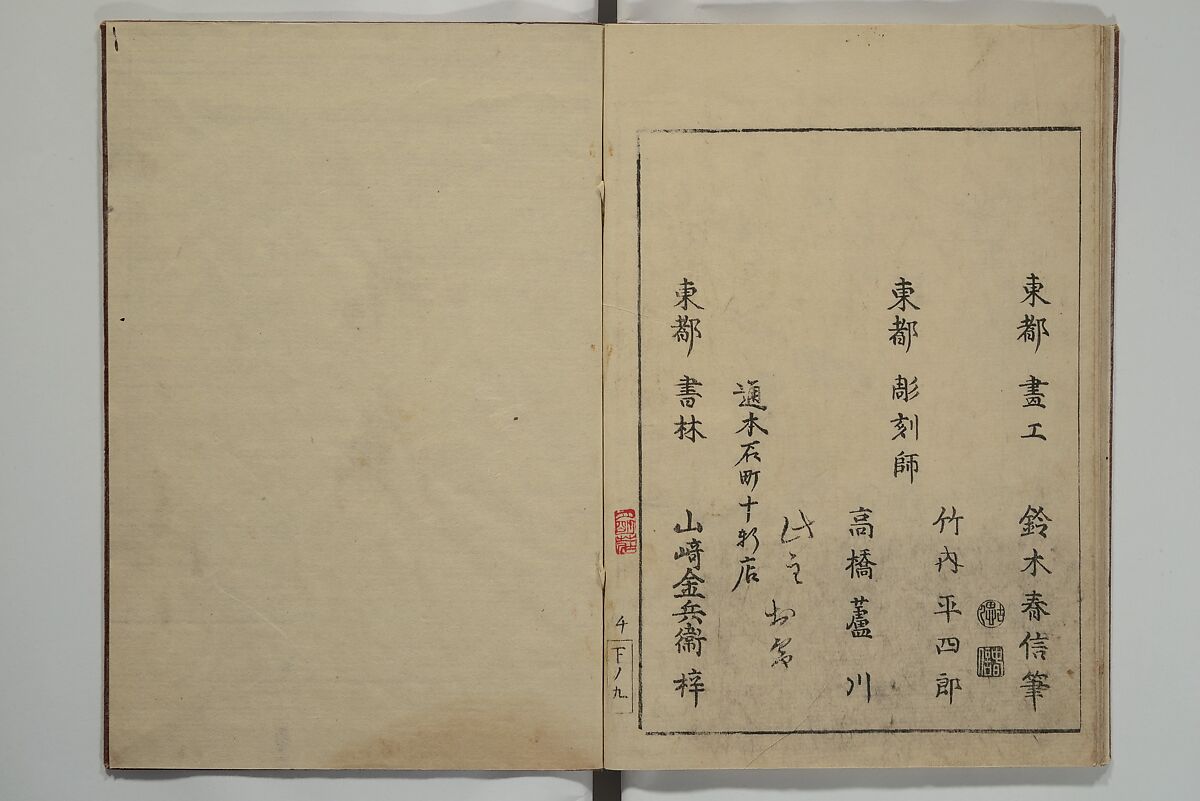 東都 畫工 鈴木春信筆
東都 彫刻師 竹内平四郎
高橋蘆川
此主
通本石町十軒店
東都 書林 山﨑金兵衞梓
下ノ九